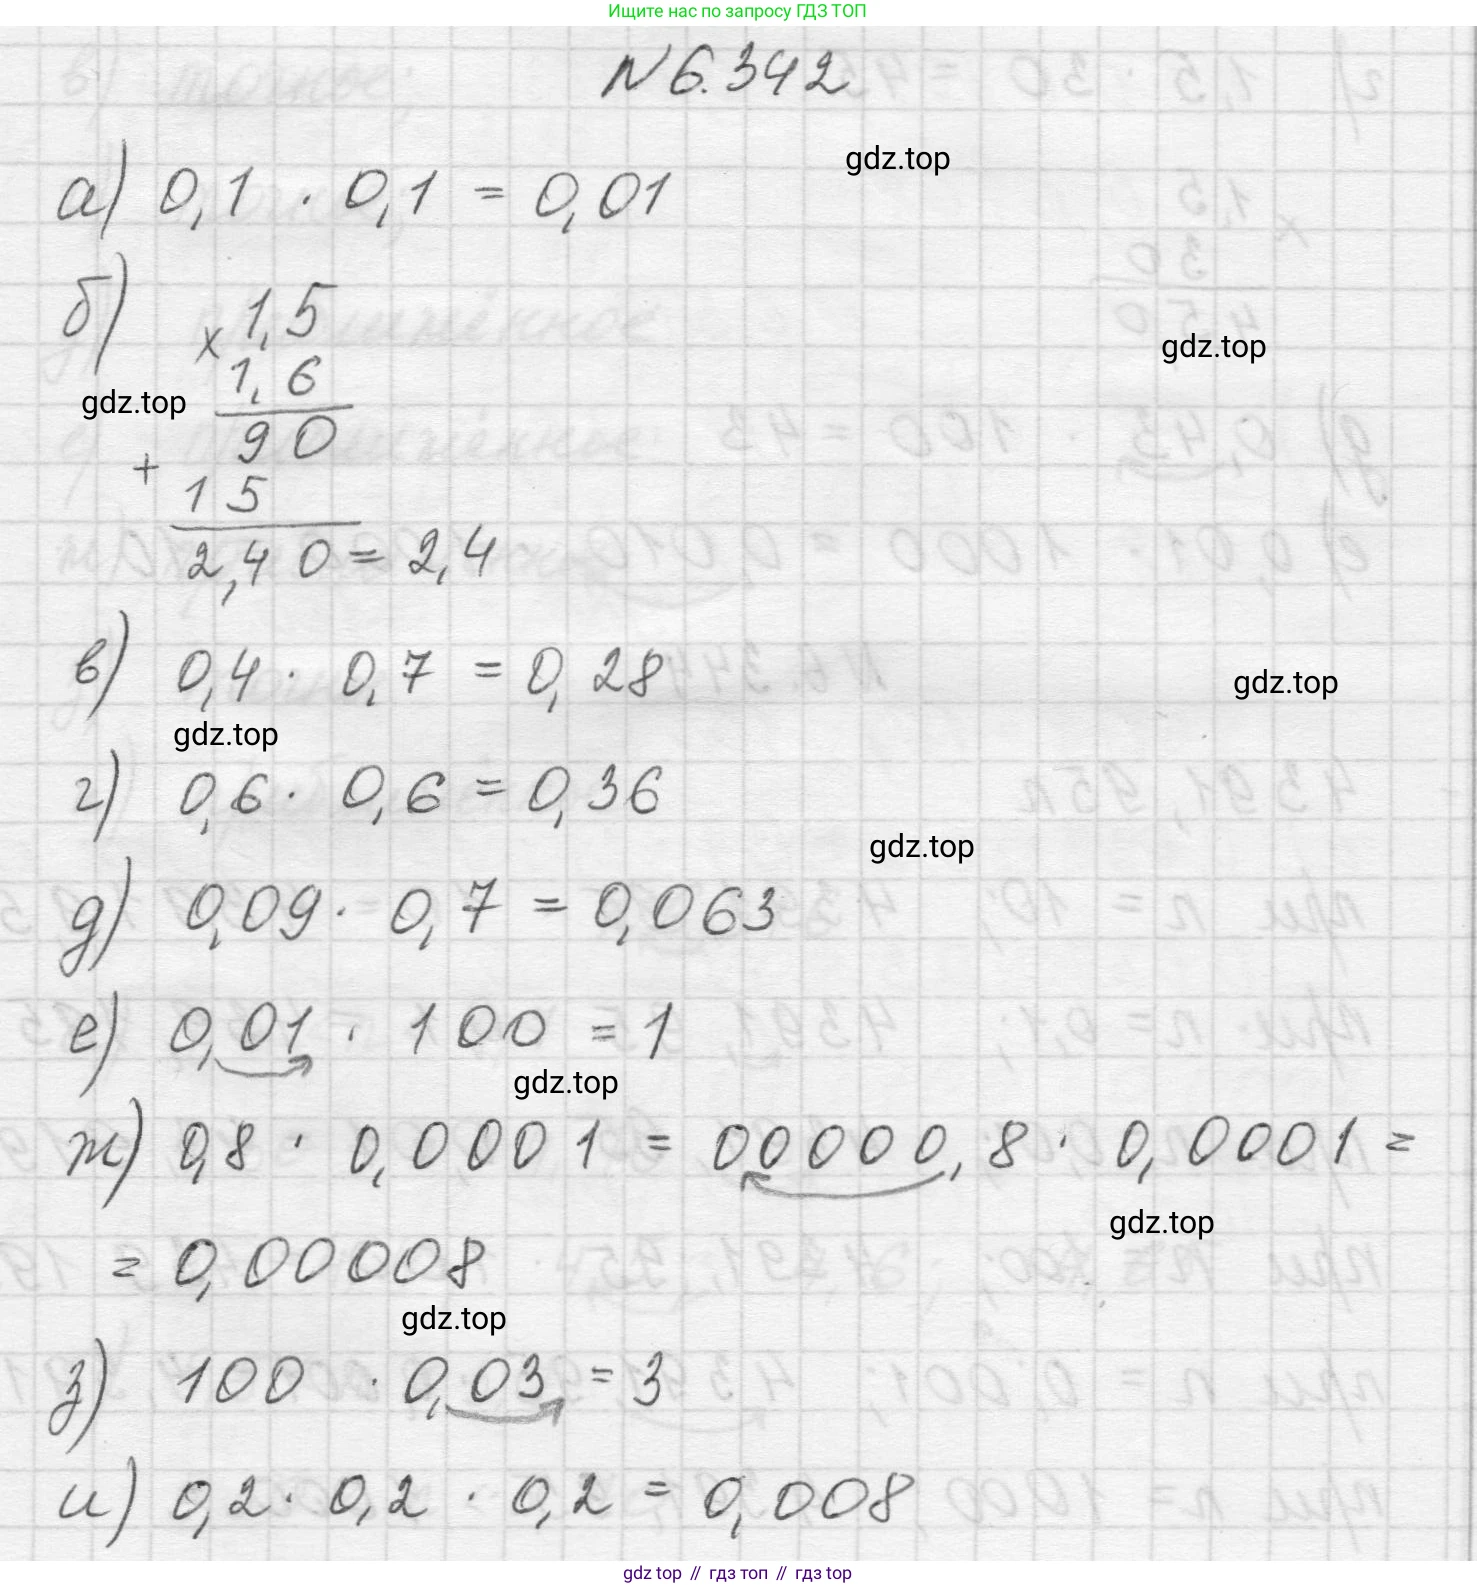 Ищите нас по запросу ГДЗ ТОП
N 6.342
gdz.top
а) 0,1 · 0,1 = 0,01
б) × 1,5
gdz.top
1,6
gdz.top
90
+
15
2,40 = 2,4
в) 0,4 · 0,7 = 0,28
gdz.top
gdz.top
г) 0,6 · 0,6 = 0,36
gdz.top
д) 0,09 · 0,7 = 0,063
е) 0,01 · 100 = 1
gdz.top
ж) 0,8 · 0,0001 = 00000,8 · 0,0001 =
gdz.top
= 0,00008
gdz.top
з) 100 · 0,03 = 3
и) 0,2 · 0,2 · 0,2 = 0,008
gdz top // гдз топ // гдз top